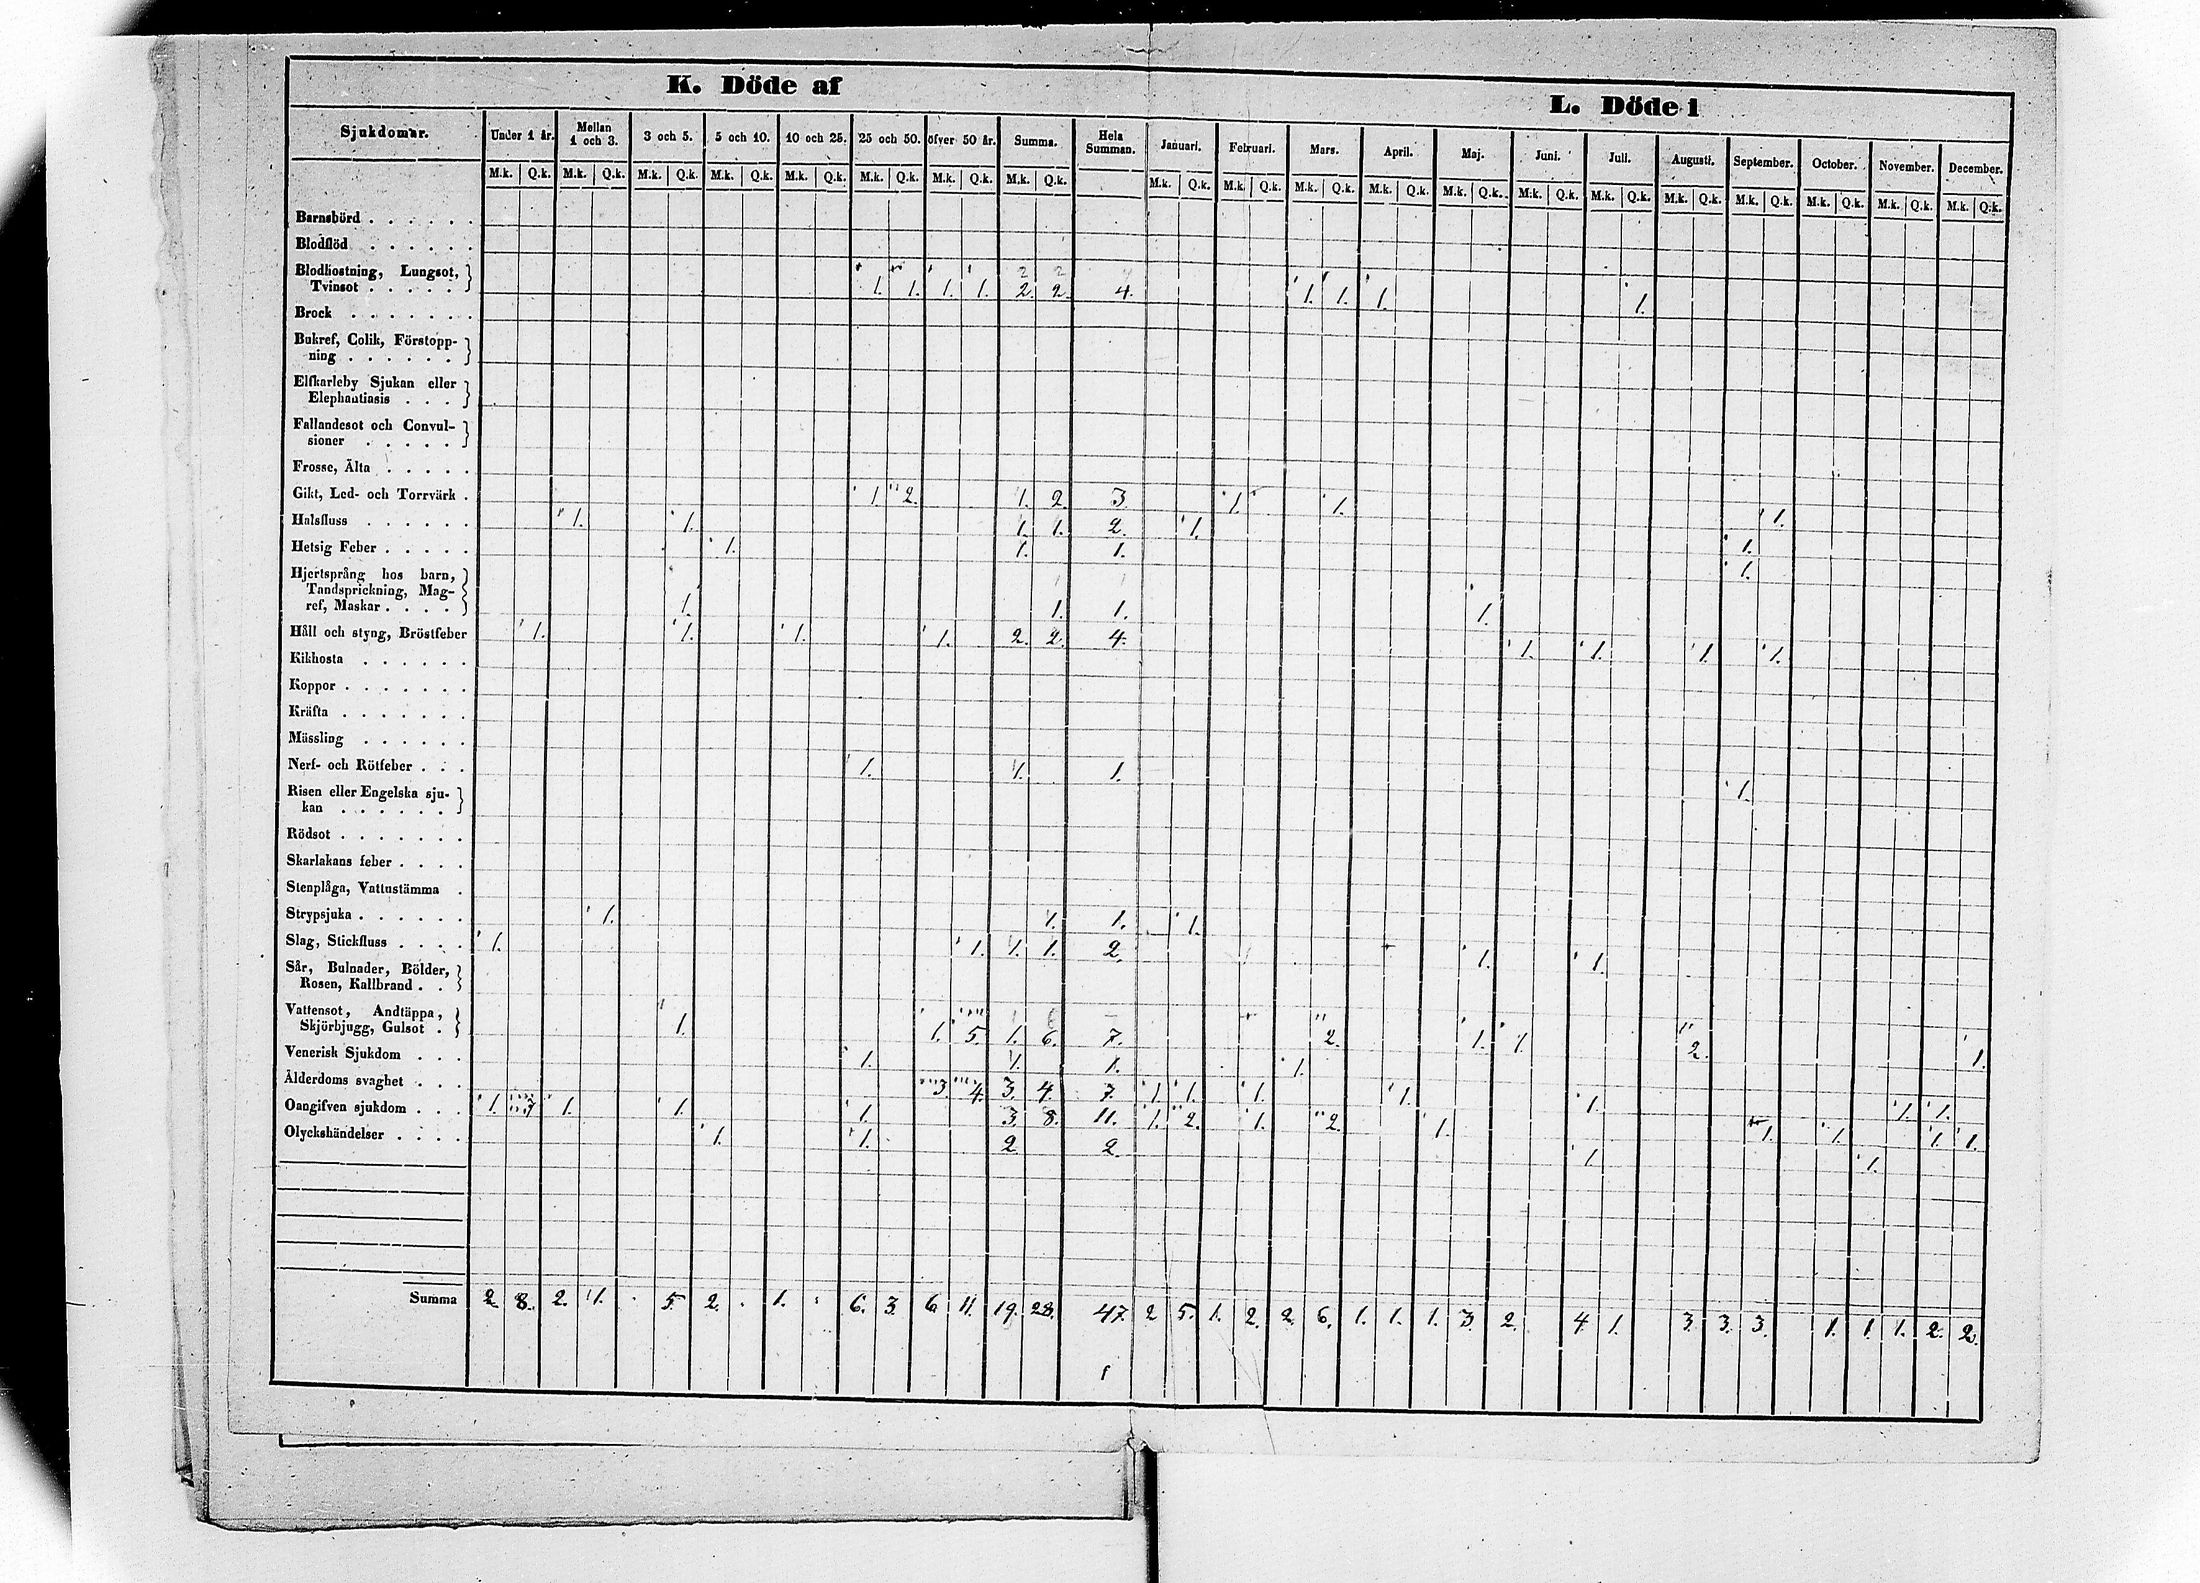 K. Döde af L. Döde i
Sjukdomar. Under 1 år. Mellan 1 och 3. 3 och 5. 5 och 10. 10 och 25. 25 och 50. öfver 50 år. Summa. Hela Summan. Januari. Februari. Mars. April. Maj. Juni. Juli. Augusti. September. October. November. December.
M.k. Q.k. M.k. Q.k. M.k. Q.k. M.k. Q.k. M.k. Q.k. M.k. Q.k. M.k. Q.k. M.k. Q.k. M.k. Q.k. M.k. Q.k. M.k. Q.k. M.k. Q.k. M.k. Q.k. M.k. Q.k. M.k. Q.k. M.k. Q.k. M.k. Q.k. M.k. Q.k. M.k. Q.k. M.k. Q.k.
Barnsbörd . . . . . .
Blodflöd . . . . . .
Blodhostning, Lungsot, }
Tvinsot . . . . . 1. 1. 1. 1. 2. 2. 4. 1. 1. 1. 1.
Brock . . . . . . .
Bukref, Colik, Förstopp- }
ning . . . . . .
Elfkarleby Sjukan eller }
Elephantiasis . . .
Fallandesot och Convul- }
sioner . . . . .
Frosse, Älta . . . . .
Gikt, Led- och Torrvärk . 1. 2. 1. 2. 3. 1. 1. 1.
Halsfluss . . . . . . 1. 1. 1. 1. 2. 1. 1.
Hetsig Feber . . . . . 1. 1. 1. 1.
Hjertsprång hos barn, }
Tandsprickning, Mag-
ref, Maskar . . . . 1. 1. 1. 1.
Håll och styng, Bröstfeber 1. 1. 1. 1. 2. 2. 4. 1. 1. 1. 1.
Kikhosta . . . . . .
Koppor . . . . . . .
Kräfta . . . . . . .
Mässling . . . . . .
Nerf- och Rötfeber . . . 1. 1. 1. 1.
Risen eller Engelska sju- }
kan . . . . . .
Rödsot . . . . . . .
Skarlakans feber . . . .
Stenplåga, Vattustämma .
Strypsjuka . . . . . . 1. 1. 1. 1.
Slag, Stickfluss . . . . 1. 1. 1. 1. 2. 1. 1.
Sår, Bulnader, Bölder, }
Rosen, Kallbrand . .
Vattensot, Andtäppa, }
Skjörbjugg, Gulsot . 1. 1. 5. 1. 6. 7. 2. 1. 1. 2. 1.
Venerisk Sjukdom . . . 1. 1. 1. 1.
Ålderdoms svaghet . . . 3 4. 3. 4. 7. 1. 1. 1. 1. 1. 1. 1.
Oangifven sjukdom . . . 1. 7 1. 1. 1. 3. 8. 11. 1. 2. 1. 2. 1. 1. 1. 1. 1.
Olyckshändelser . . . . 1. 1. 2 2. 1. 1.
Summa 2. 8. 2. 1. 5. 2. 1. 6. 3. 6. 11. 19. 28. 47. 2 5. 1. 2. 2. 6. 1. 1. 1. 3. 2. 4. 1. 3. 3. 3. 1. 1. 1. 2. 2.